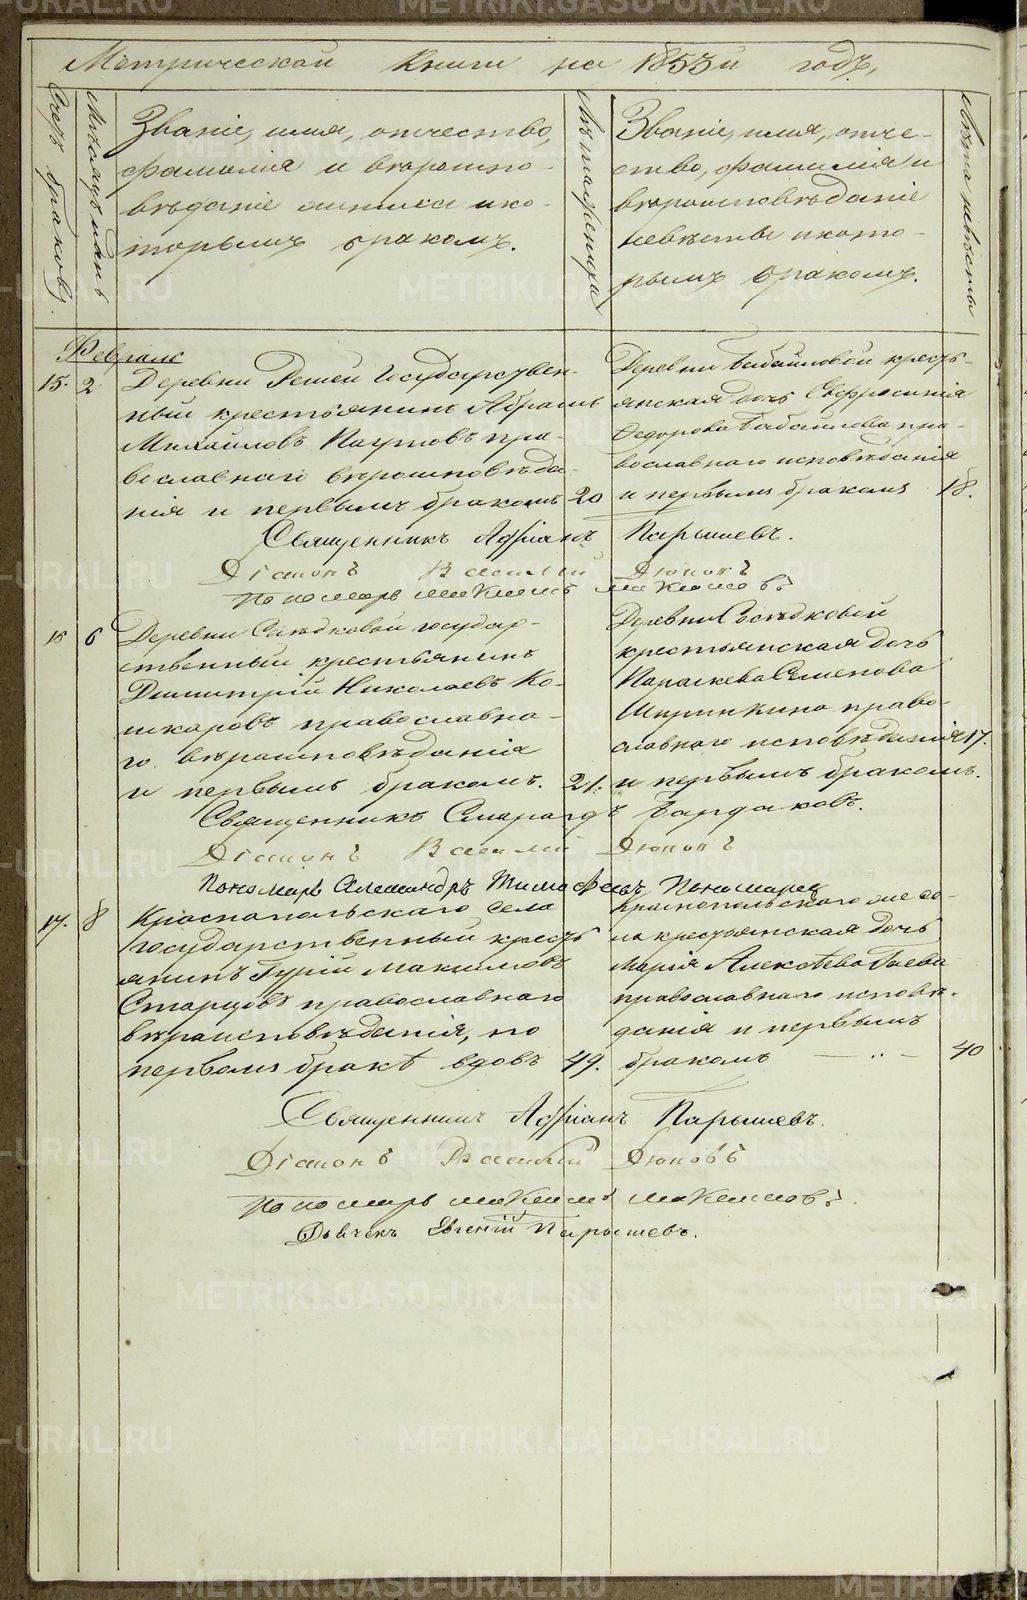 Метрической книги на 1853й годъ,
Счетъ браковъ.
Мѣсяцъ и день
Званіе, имя, отчество,
фамилія и вѣроиспо-
вѣданіе жениха и ко-
торымъ бракомъ.
Лѣта жениха
Званіе, имя, отче-
ство, фамилія и
вѣроисповѣданіе
невѣсты и кото-
рымъ бракомъ.
Лѣта невѣсты
Февраль
15. 2
Деревни Решей Государствен-
ный крестьянинъ Абрамъ
Михайловъ Паутовъ пра-
вославнаго вѣроисповѣда-
нія и первымъ бракомъ 20
Деревни Бабайловой кресть-
янская дочь Евфросинія
Федорова Бабаилова пра-
вославнаго исповѣданія
и первымъ бракомъ 18.
Священникъ Адріанъ Парышевъ.
Діаконъ Василій Дюковъ
Пономарь Максимъ Максимовъ
16 6
Деревни Сосѣдковой государ-
ственный крестьянинъ
Димитрій Николаевъ Ко-
шкаровъ православна-
го вѣроисповѣданія
и первымъ бракомъ. 21.
Деревни Сосѣдковой
крестьянская дочь
Параскева Семенова
Ширинкина право-
славнаго исповѣданія 17.
и первымъ бракомъ.
Священникъ Смарагдъ
Діаконъ Василій Дюковъ
Пономарь Александръ Пономаревъ
17. 8
Краснопольскаго села
Государственный кресть
янинъ Гурій Максимовъ
Старцовъ православнаго
вѣроисповѣданія, по
первомъ бракѣ вдовъ 49.
Краснопольскаго же се-
ла крестьянская дочь
Марія Алексѣева Гаева
православнаго исповѣ-
данія и первымъ
бракомъ 40
Священникъ Адріанъ Парышевъ.
Діаконъ Василій Дюковъ
Пономарь Максимъ Максимовъ.
Дьячекъ Евгеній Парышевъ.
METRIKI.GASO-URAL.RU